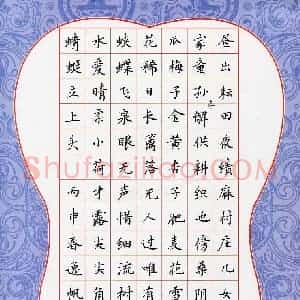 昼出耘田夜绩麻村庄儿女
家童孙未解供耕织也傍桑
瓜梅子金黄杏子肥麦花雪
花稀日长篱落无人过唯有
蛱蝶飞泉眼无声惜细流树
水爱晴柔小荷才露尖尖角
蜻蜓立上头春帆